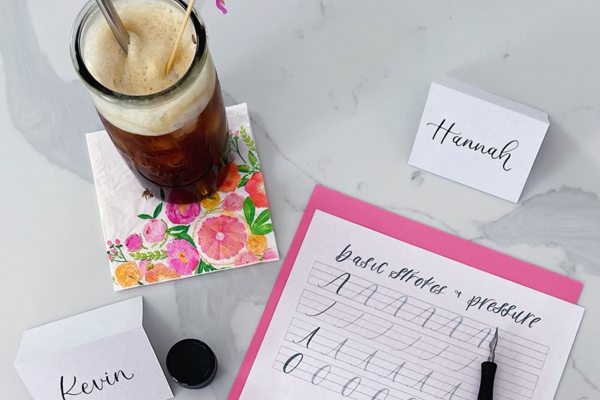 Hannah
basic strokes & pressure
Kevin